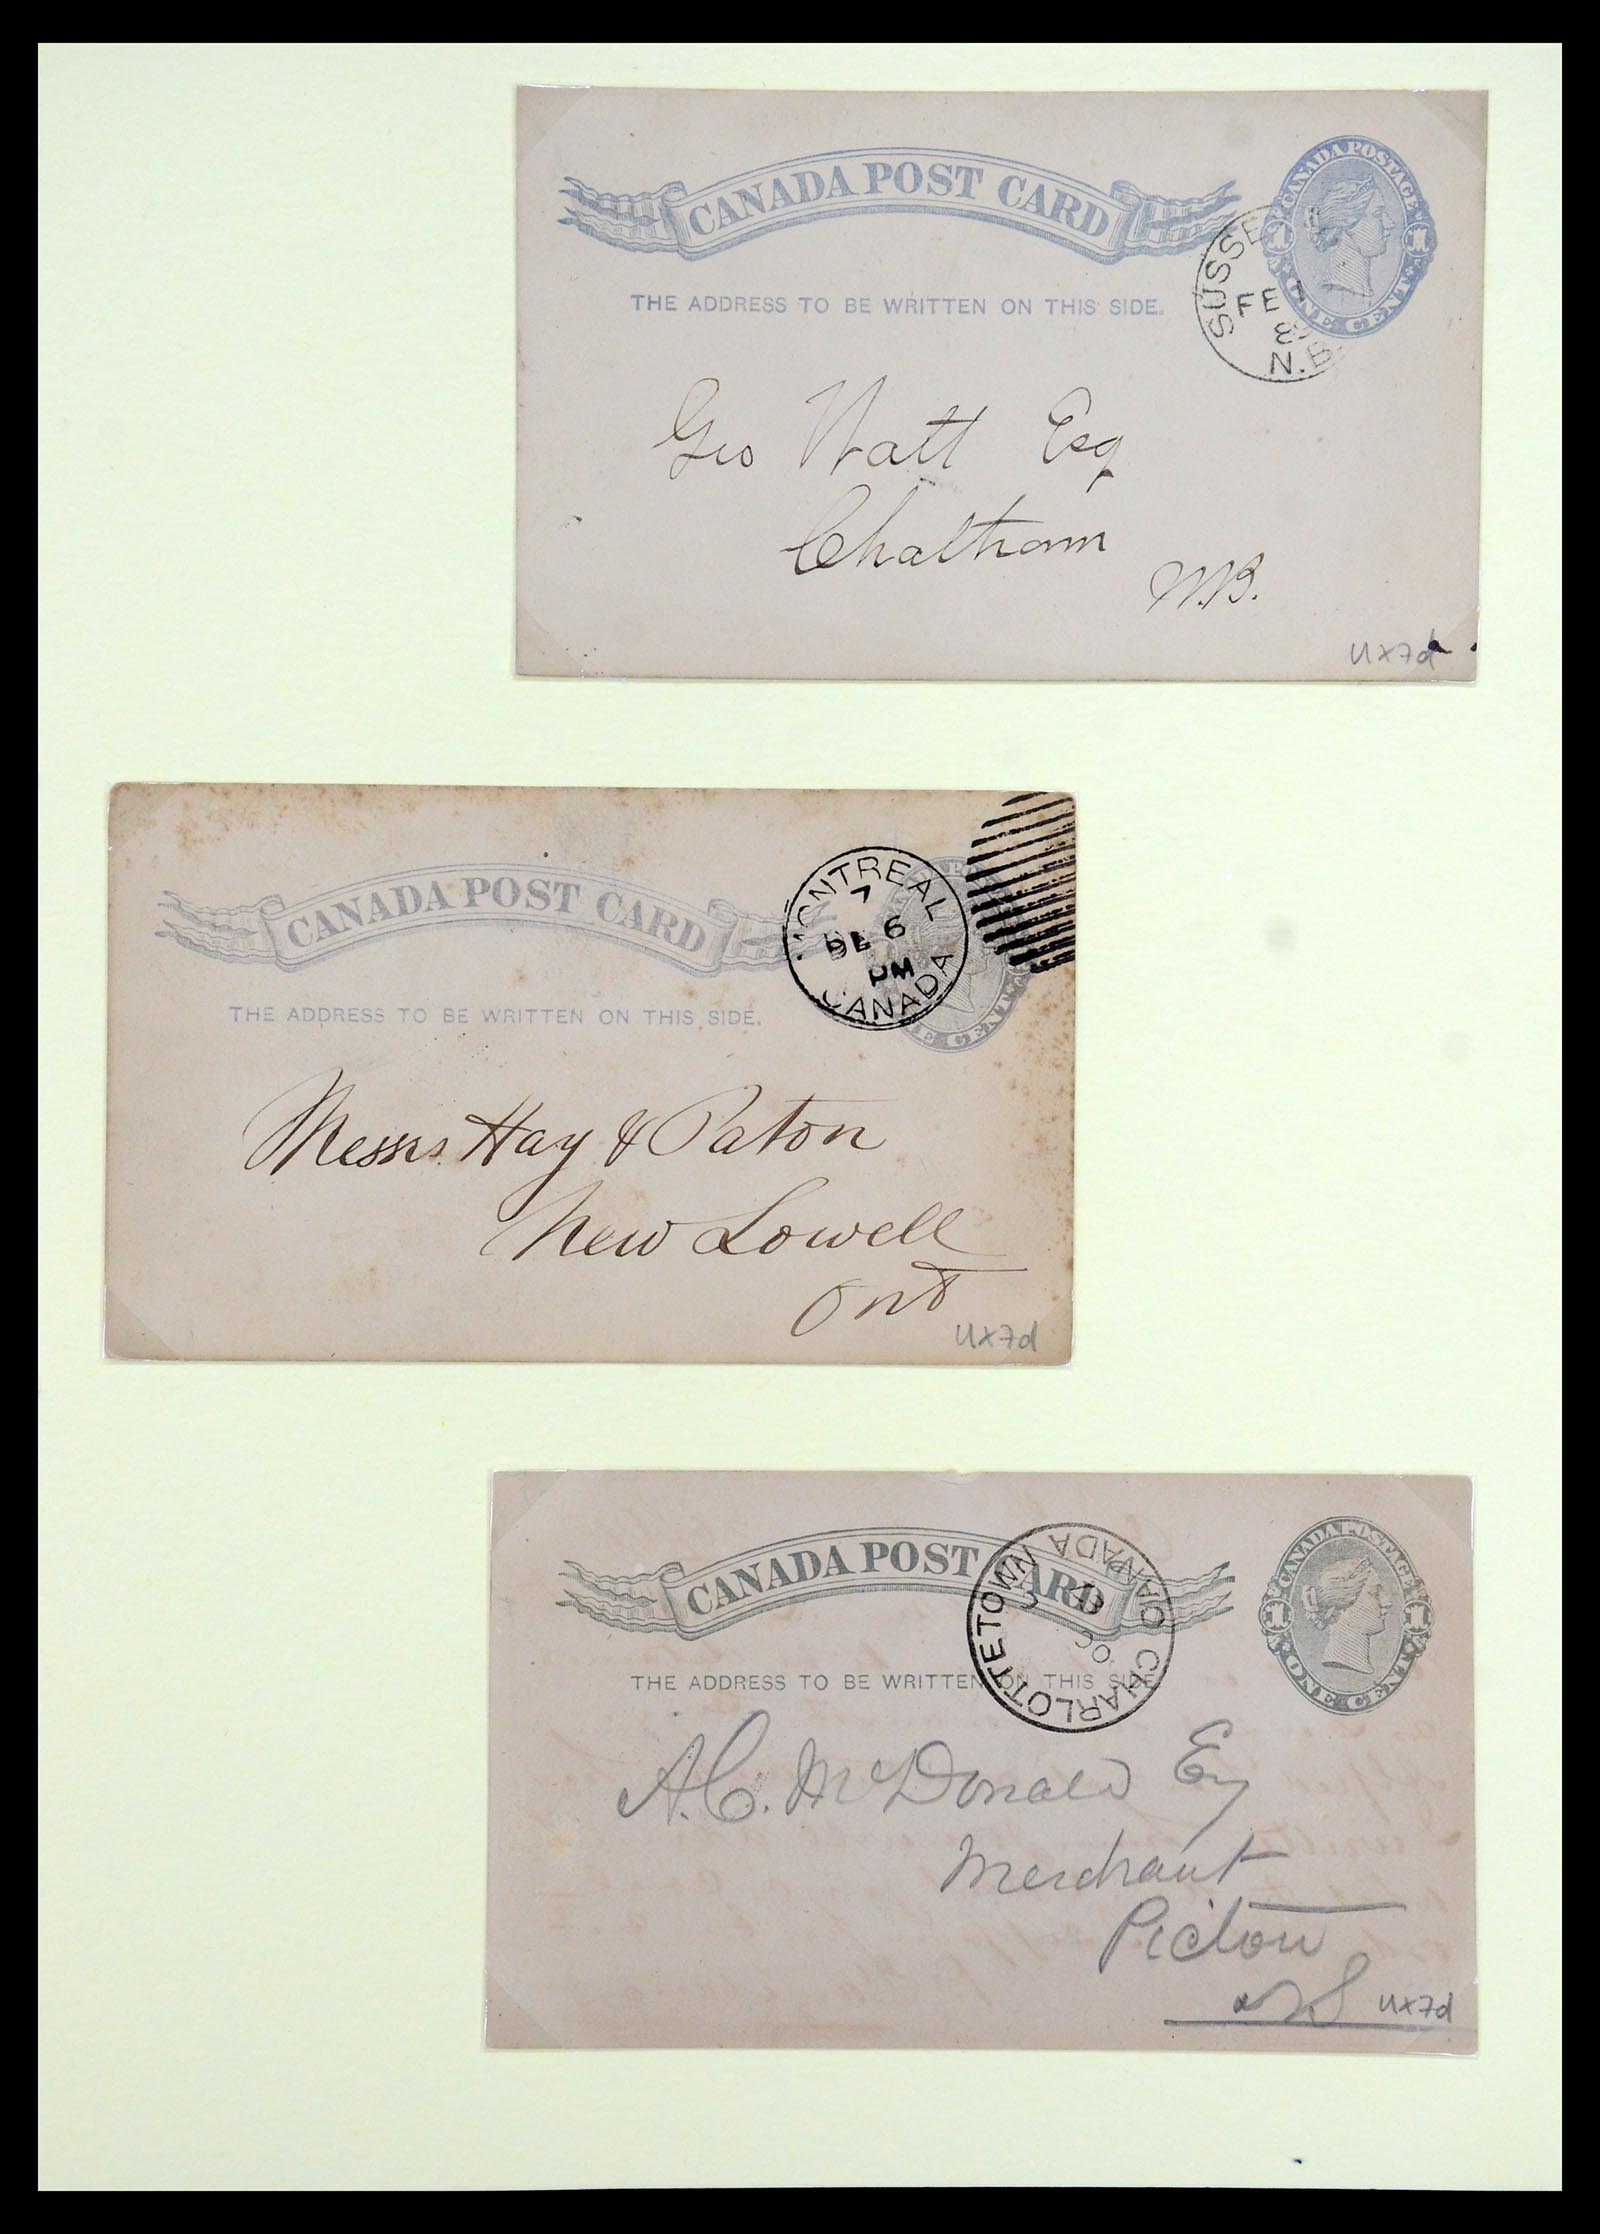 CANADA POST CARD
CANADA POSTAGE
1 1
ONE CENT
THE ADDRESS TO BE WRITTEN ON THIS SIDE.
SUSSE
FE
N.B.
Geo Watt Esq
Chatham
N.B.
UX7d
CANADA POST CARD
MONTREAL
7
DE 6
PM
CANADA
CENT
THE ADDRESS TO BE WRITTEN ON THIS SIDE.
Messrs Hay & Paton
New Lowell
Ont
UX7d
CANADA POST CARD
CANADA POSTAGE
1 1
ONE CENT
CHARLOTTETOWN CANADA
OC
THE ADDRESS TO BE WRITTEN ON THIS SIDE
A.C. McDonald Esq
Merchant
Pictou
NS
UX7d